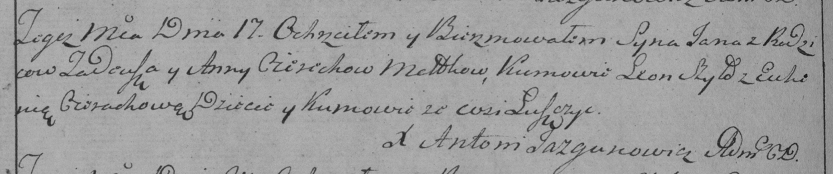 Tegoż Mca Dnia 17. Ochrzciłem y Bierzmowałem Syna Jana z Rodzi
cow Tadeusza y Anny Cierechow Małżkow, Kumowie Leon Szyło z Euhe
nią Cierachową Dziecie y Kumowie ze wsi Łuszczyc.
X Antoni Jazgunowicz Adm C D.